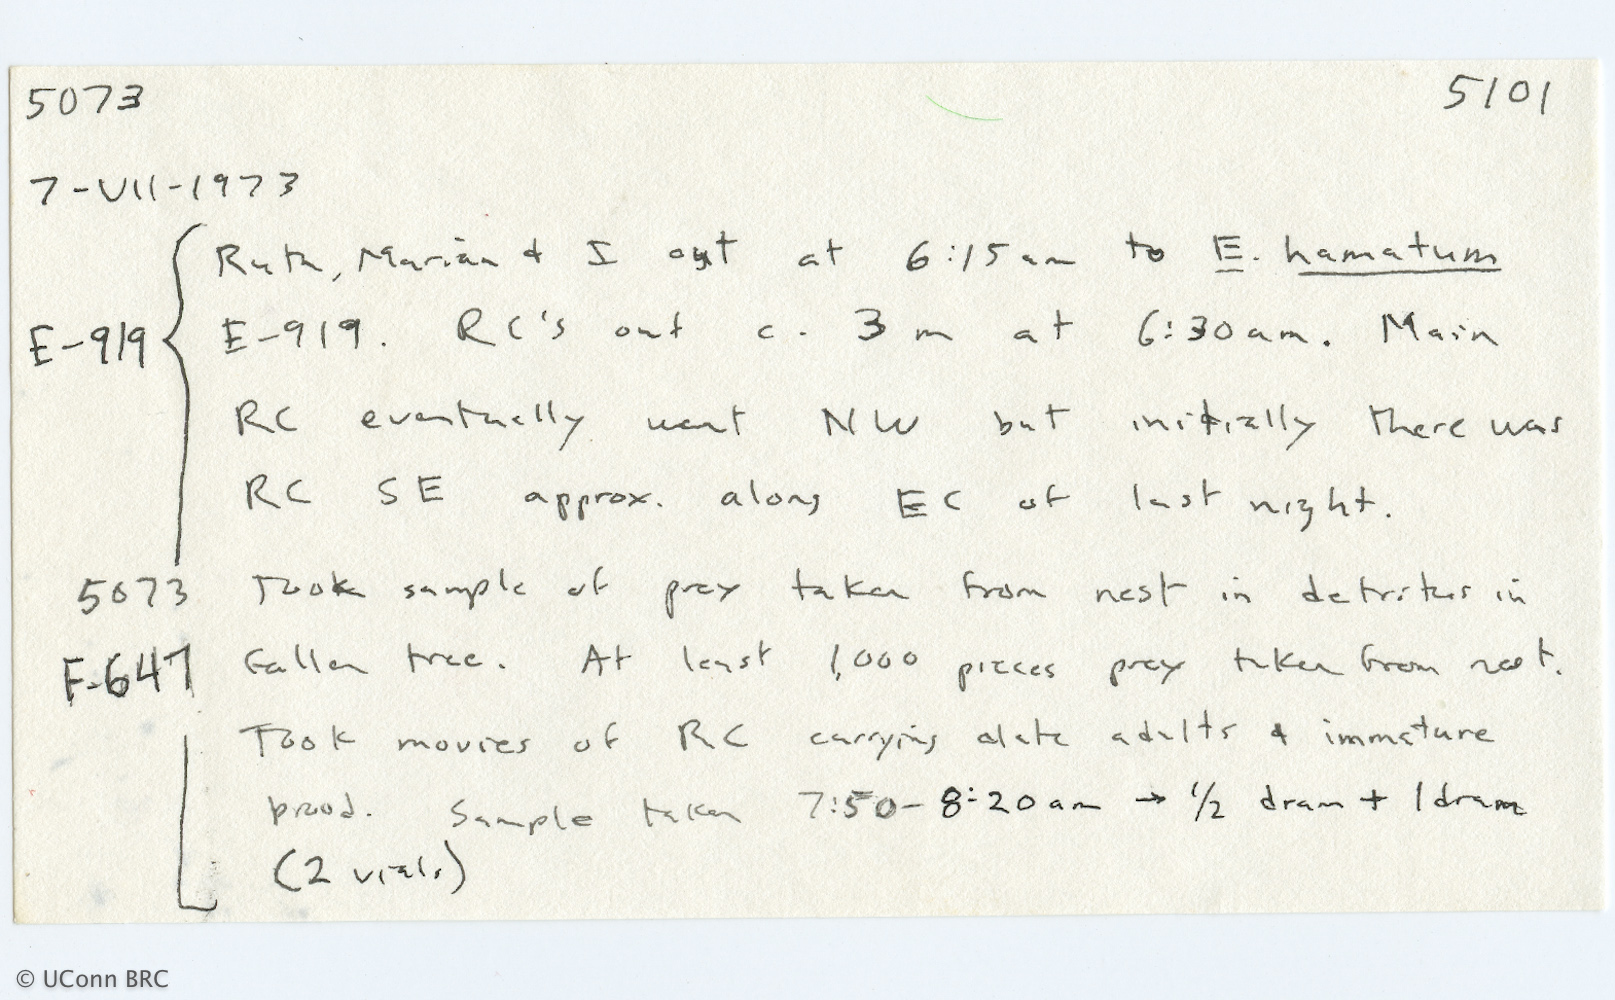 5073 5101
7-VII-1973
Ruth, Marian & I out at 6:15 am to E. hamatum
E-919 E-919. RC's out c. 3 m at 6:30 am. Main
RC eventually went NW but initially there was
RC SE approx. along EC of last night.
5073 Took sample of prey taken from nest in detritus in
F-647 fallen tree. At least 1,000 pieces prey taken from nest.
Took movies of RC carrying alate adults & immature
brood. Sample taken 7:50-8:20 am → 1/2 dram + 1 dram
(2 vials)
© UConn BRC